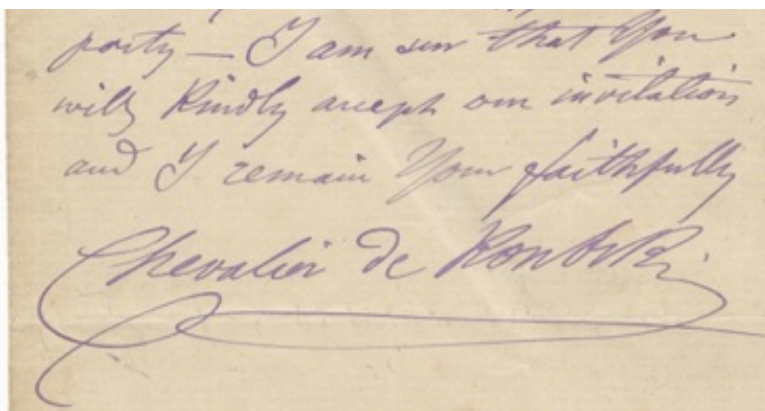 party — I am sur that You
will Kindly accept our invitation
and I remain Your faithfully
Chevalier de Kontski.